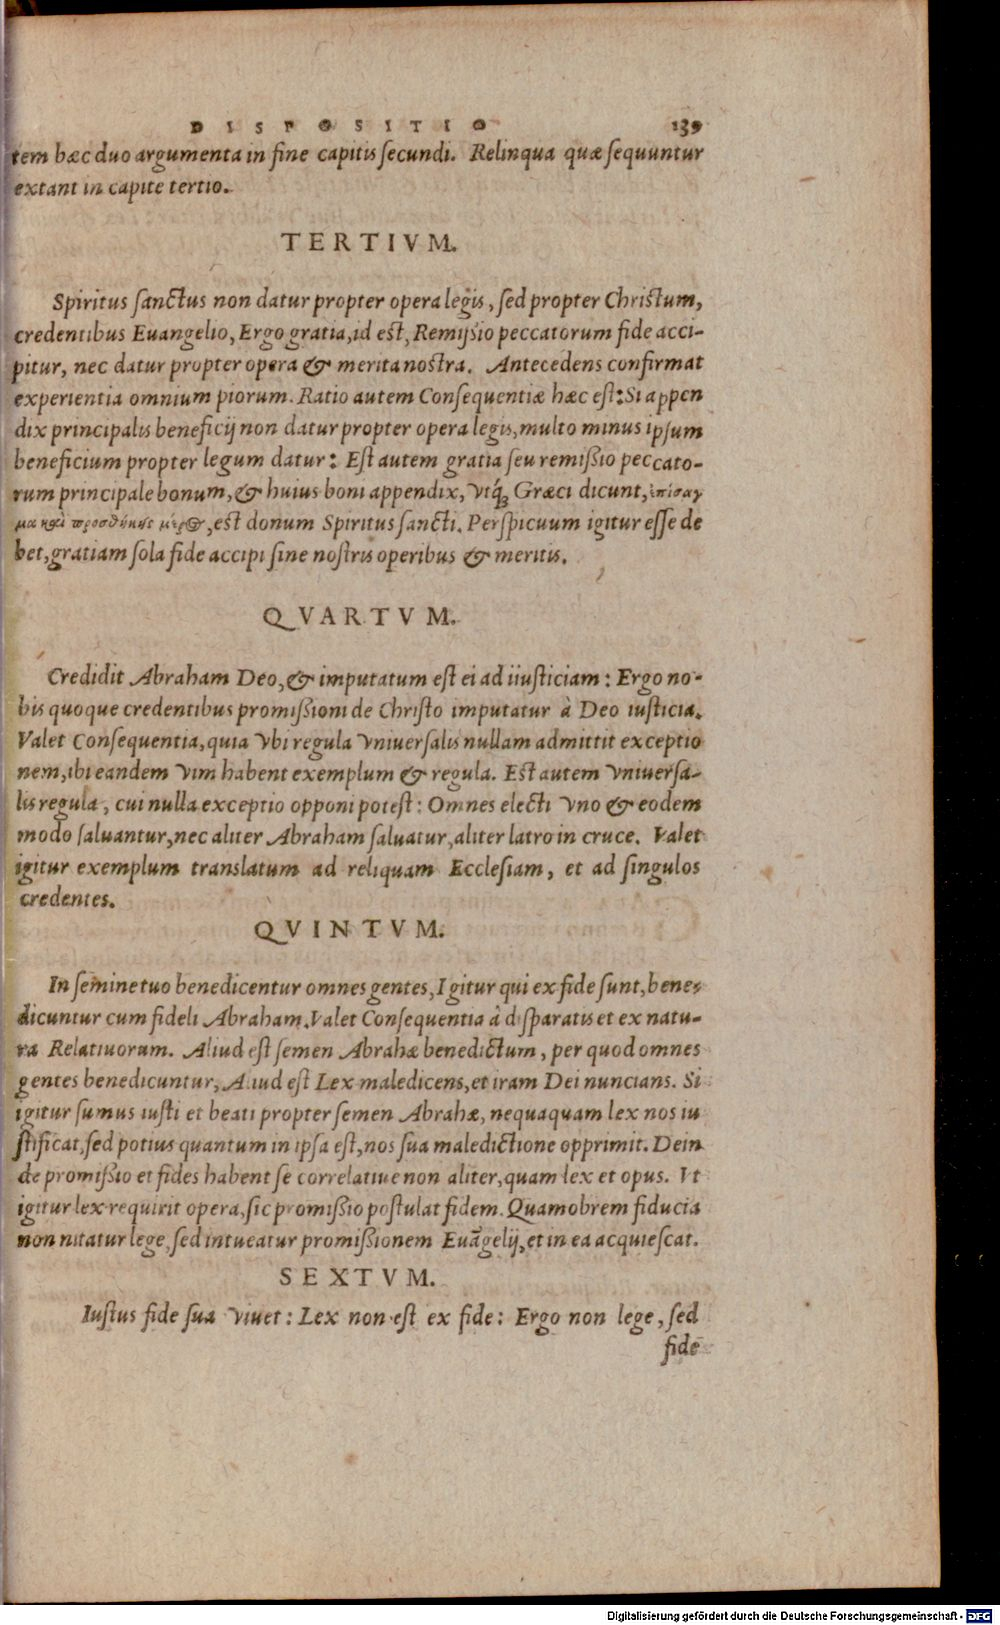 DISPOSITIO 139
tem hæc duo argumenta in fine capitis secundi. Relinqua quæ sequuntur
extant in capite tertio.
TERTIVM.
Spiritus sanctus non datur propter opera legis, sed propter Christum,
credentibus Euangelio, Ergo gratia, id est, Remissio peccatorum fide acci-
pitur, nec datur propter opera & merita nostra. Antecedens confirmat
experientia omnium piorum. Ratio autem Consequentiæ hæc est: Si appen
dix principalis beneficij non datur propter opera legis, multo minus ipsum
beneficium propter legum datur: Est autem gratia seu remissio peccato-
rum principale bonum, & huius boni appendix, vtq́; Græci dicunt,
καὶ προσθήκης μέρος, est donum Spiritus sancti. Perspicuum igitur esse de
bet, gratiam sola fide accipi sine nostris operibus & meritis.
QVARTVM.
Credidit Abraham Deo, & imputatum est ei ad iiusticiam: Ergo no-
bis quoque credentibus promissioni de Christo imputatur à Deo iusticia.
Valet Consequentia, quia vbi regula vniuersalis nullam admittit exceptio
nem, ibi eandem vim habent exemplum & regula. Est autem vniuersa-
lis regula, cui nulla exceptio opponi potest: Omnes electi vno & eodem
modo saluantur, nec aliter Abraham saluatur, aliter latro in cruce. Valet
igitur exemplum translatum ad reliquam Ecclesiam, et ad singulos
credentes.
QVINTVM.
In semine tuo benedicentur omnes gentes, Igitur qui ex fide sunt, bene-
dicuntur cum fideli Abraham. Valet Consequentia à disparatis et ex natu-
ra Relatiuorum. Aliud est semen Abrahæ benedictum, per quod omnes
gentes benedicuntur, Aliud est Lex maledicens, et iram Dei nuncians. Si
igitur sumus iusti et beati propter semen Abrahæ, nequaquam lex nos iu
stificat, sed potius quantum in ipsa est, nos sua maledictione opprimit. Dein
de promissio et fides habent se correlatiue non aliter, quam lex et opus. Vt
igitur lex requirit opera, sic promissio postulat fidem. Quamobrem fiducia
non nitatur lege, sed intueatur promissionem Euāgelij, et in ea acquiescat.
SEXTVM.
Iustus fide sua viuet: Lex non est ex fide: Ergo non lege, sed
fide
Digitalisierung gefördert durch die Deutsche Forschungsgemeinschaft - DFG